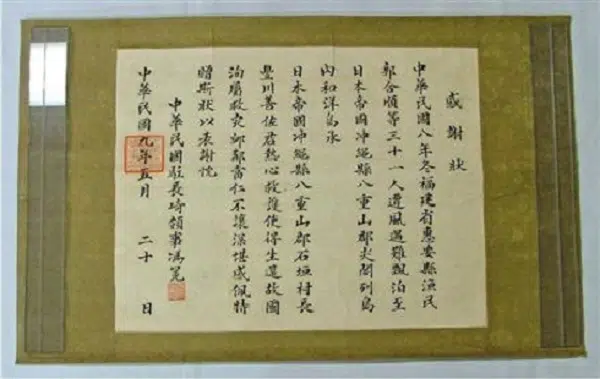 感謝狀
中華民國八年冬福建省惠安縣漁民
郭合順等三十一人遭風遇難飄泊至
日本帝國沖繩縣八重山郡尖閣列島
內和洋島承
日本帝國沖繩縣八重山郡石垣村長
豐川善佐君熱心救護使得生還故國
洵屬救灾卹鄰當仁不讓深堪感佩特
贈斯狀以表謝忱
中華民國駐長崎領事馮冕
中華民國九年五月二十日